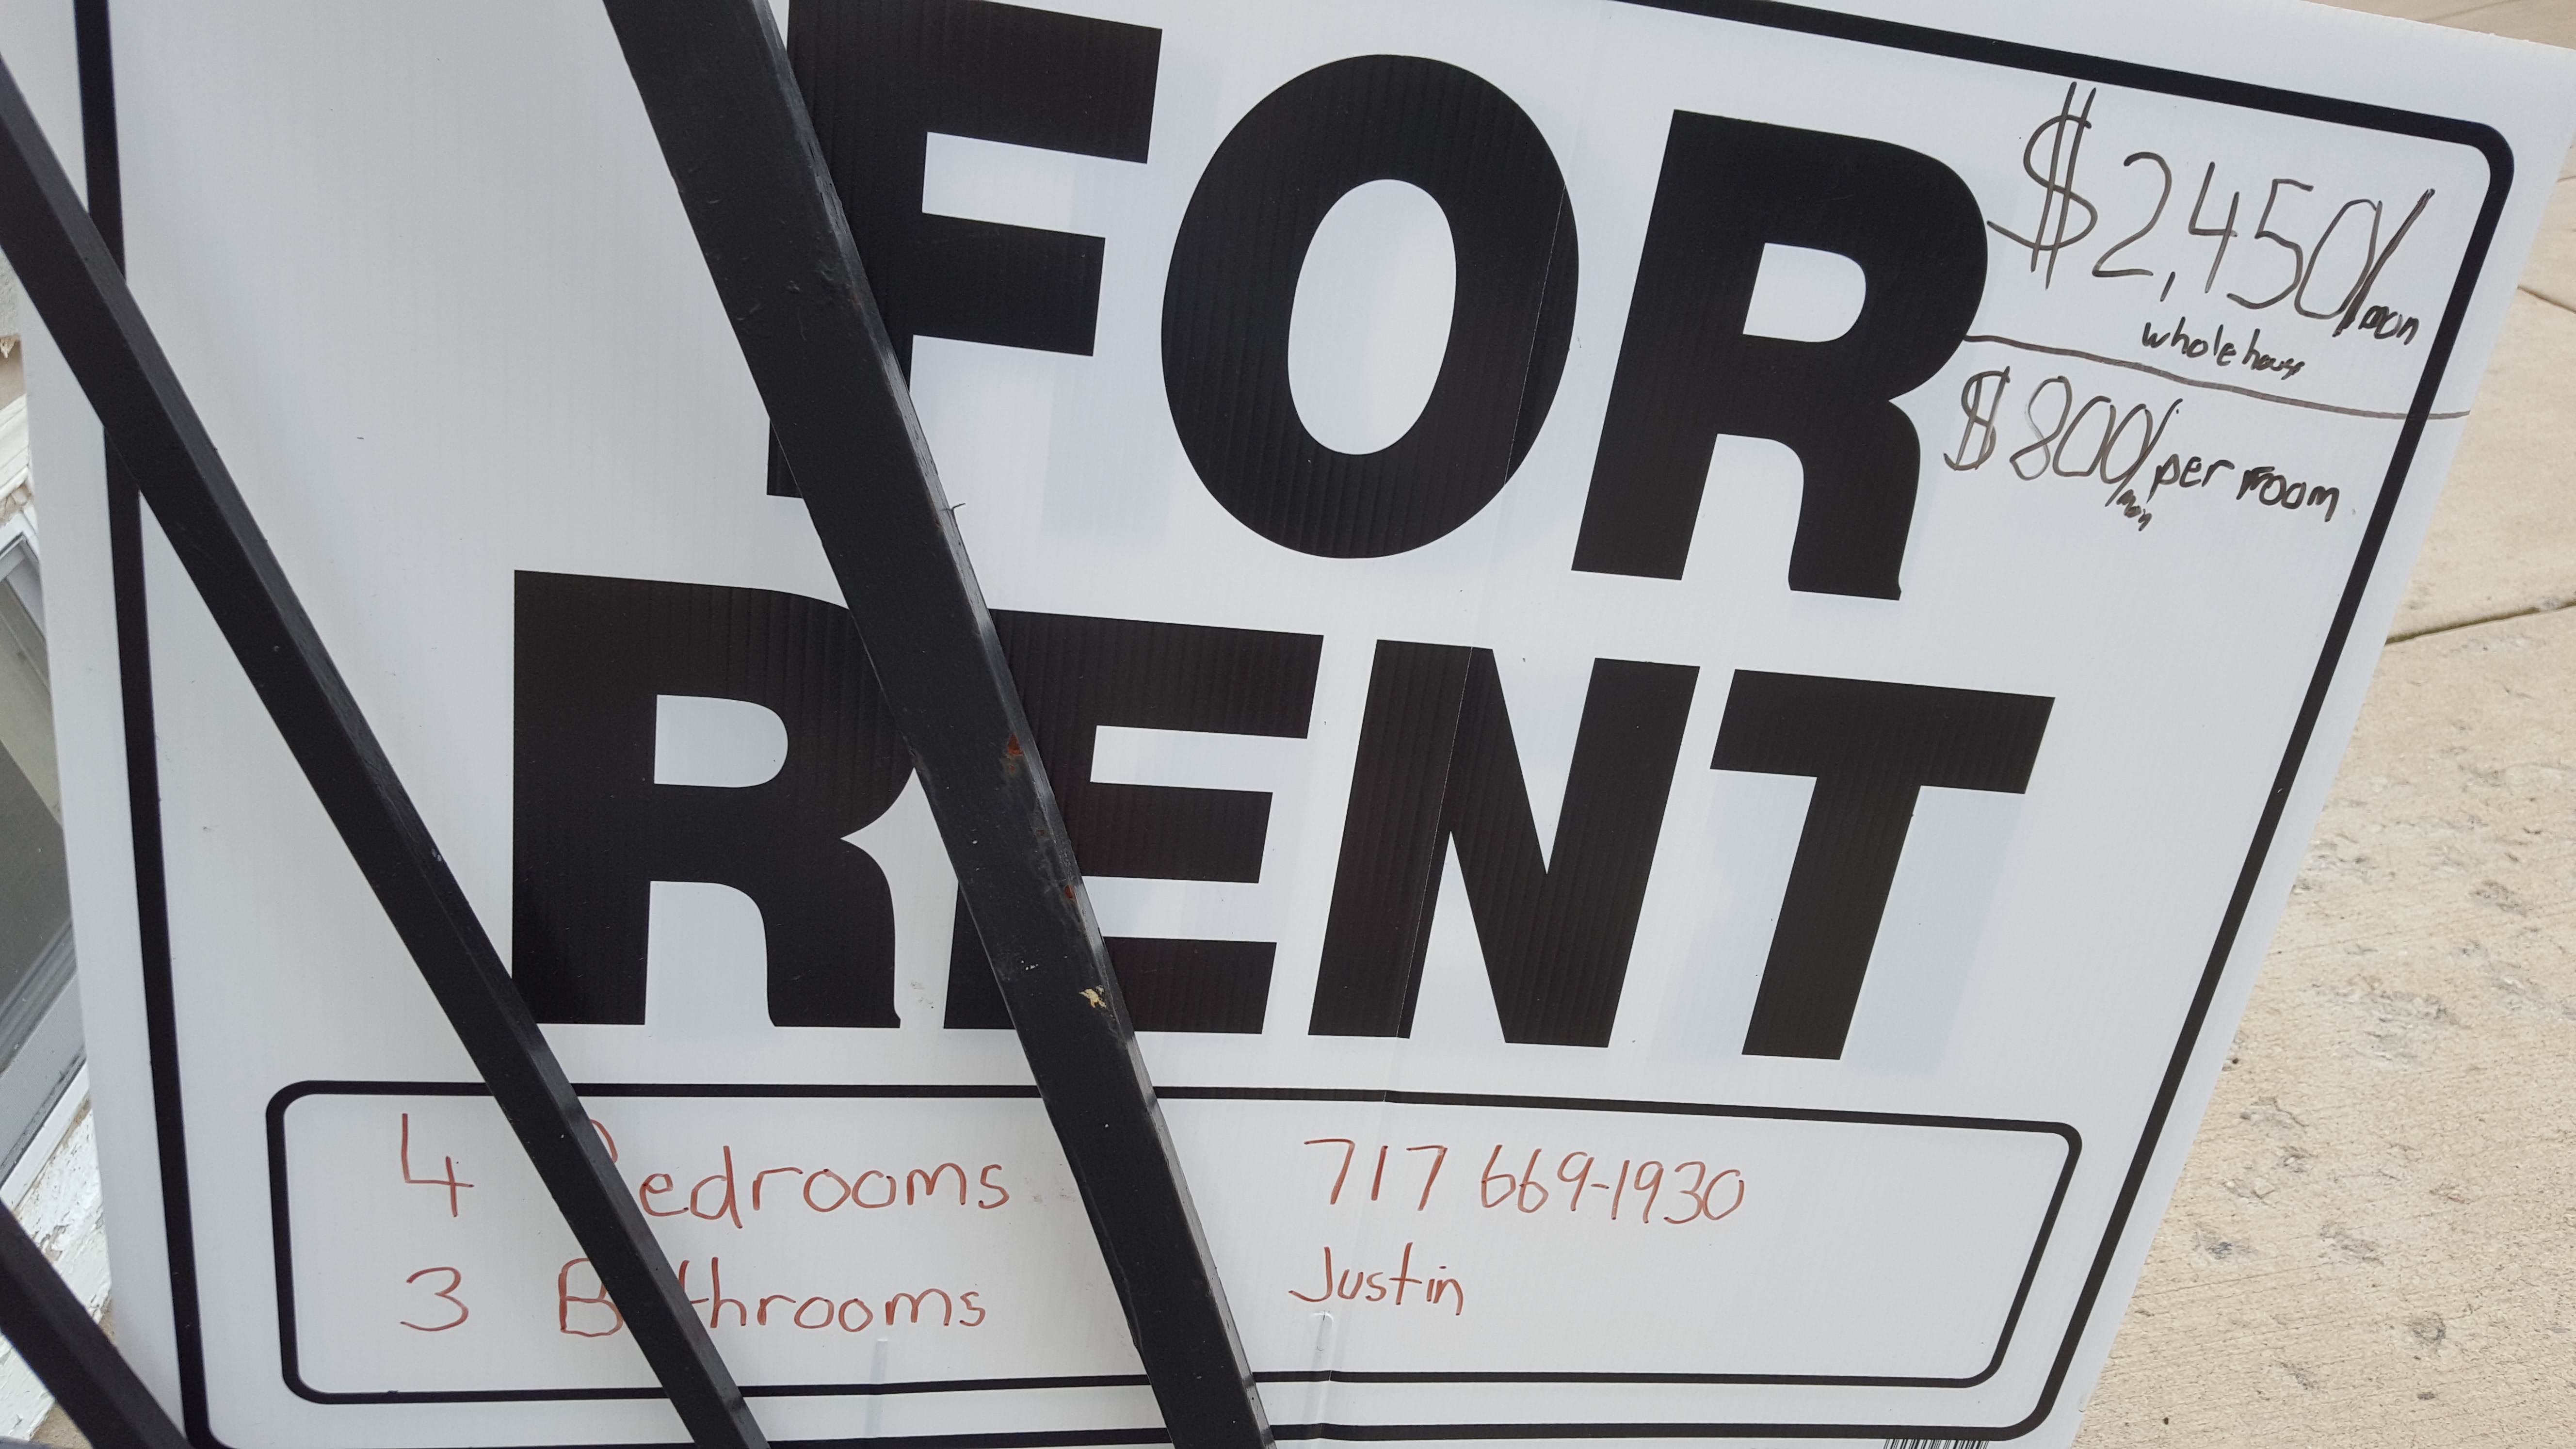 FOR
RENT
$2,450/mon
whole house
$800/mon per room
4 Bedrooms
3 Bathrooms
717 669-1930
Justin